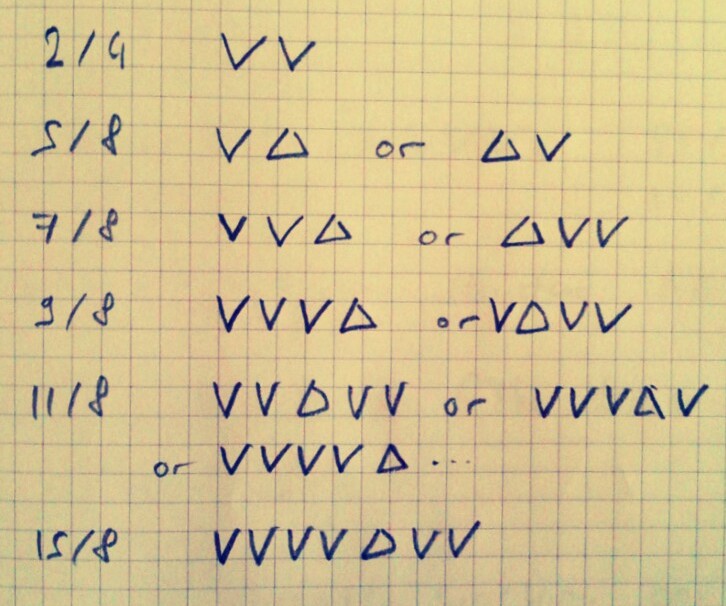 2/4 V V
5/8 V Δ or Δ V
7/8 V V Δ or Δ V V
9/8 V V V Δ or V Δ V V
11/8 V V Δ V V or V V V Δ V
or V V V V Δ ...
15/8 V V V V Δ V V